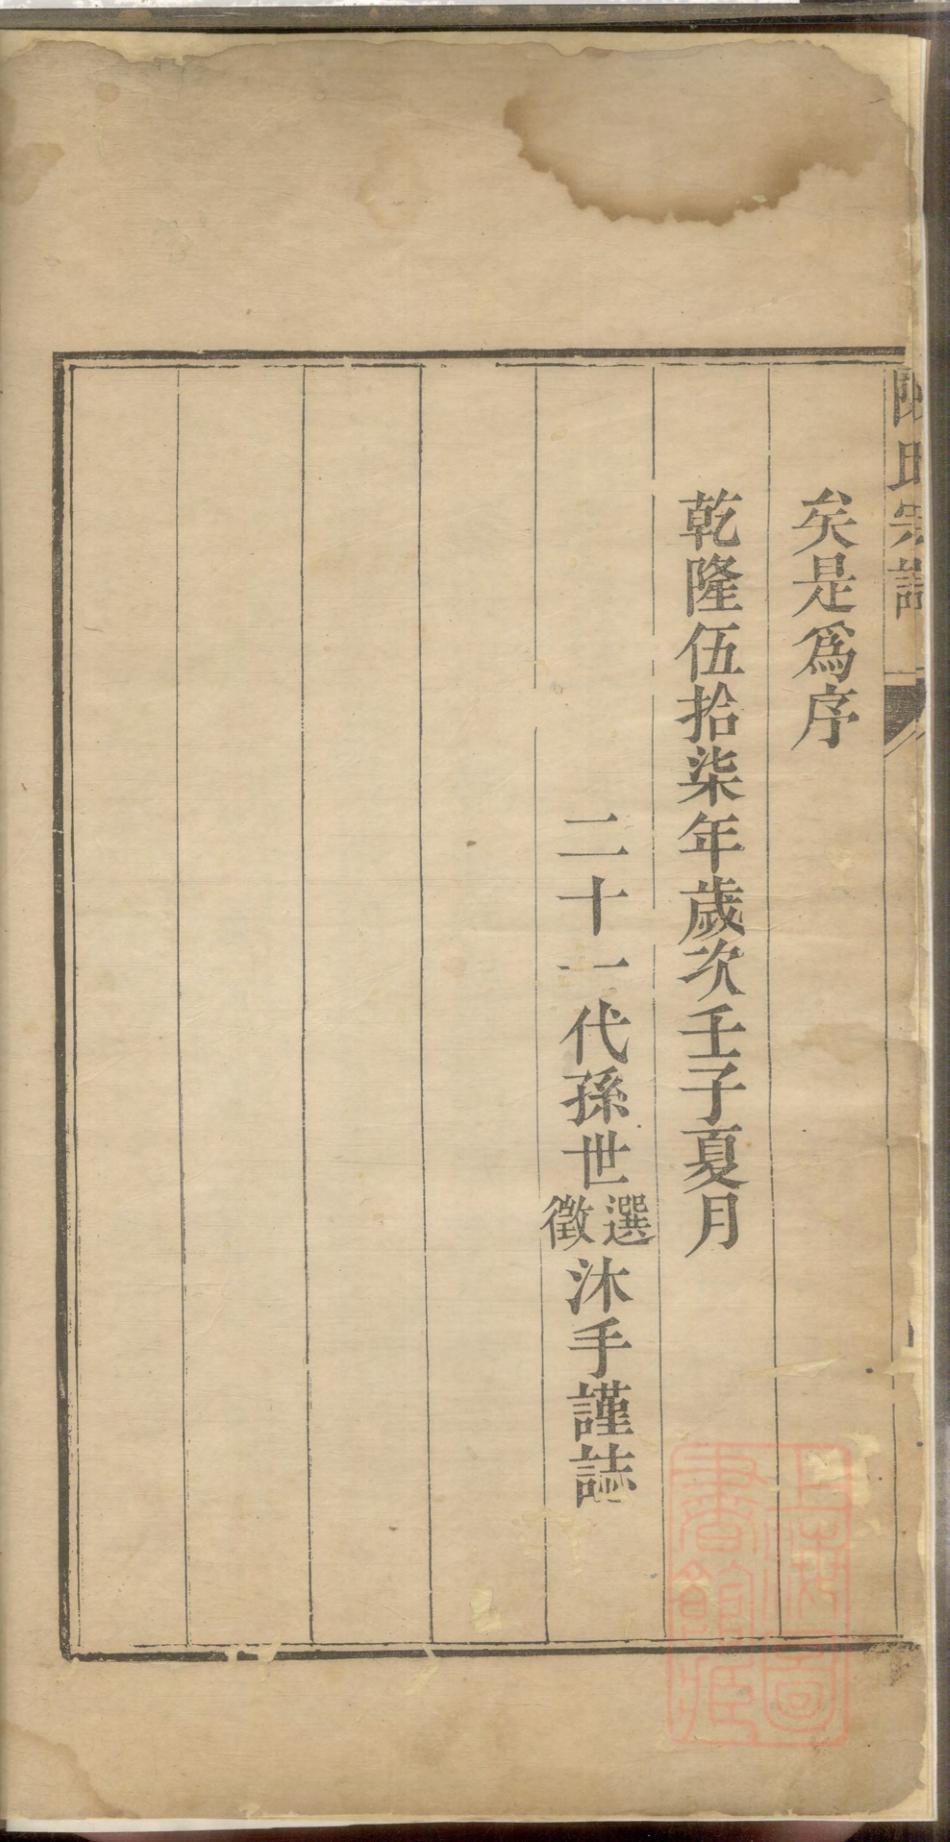 氏宗譜
矣是爲序
乾隆伍拾柒年歲次壬子夏月
二十一代孫世選徵沐手謹誌
上海圖書館藏